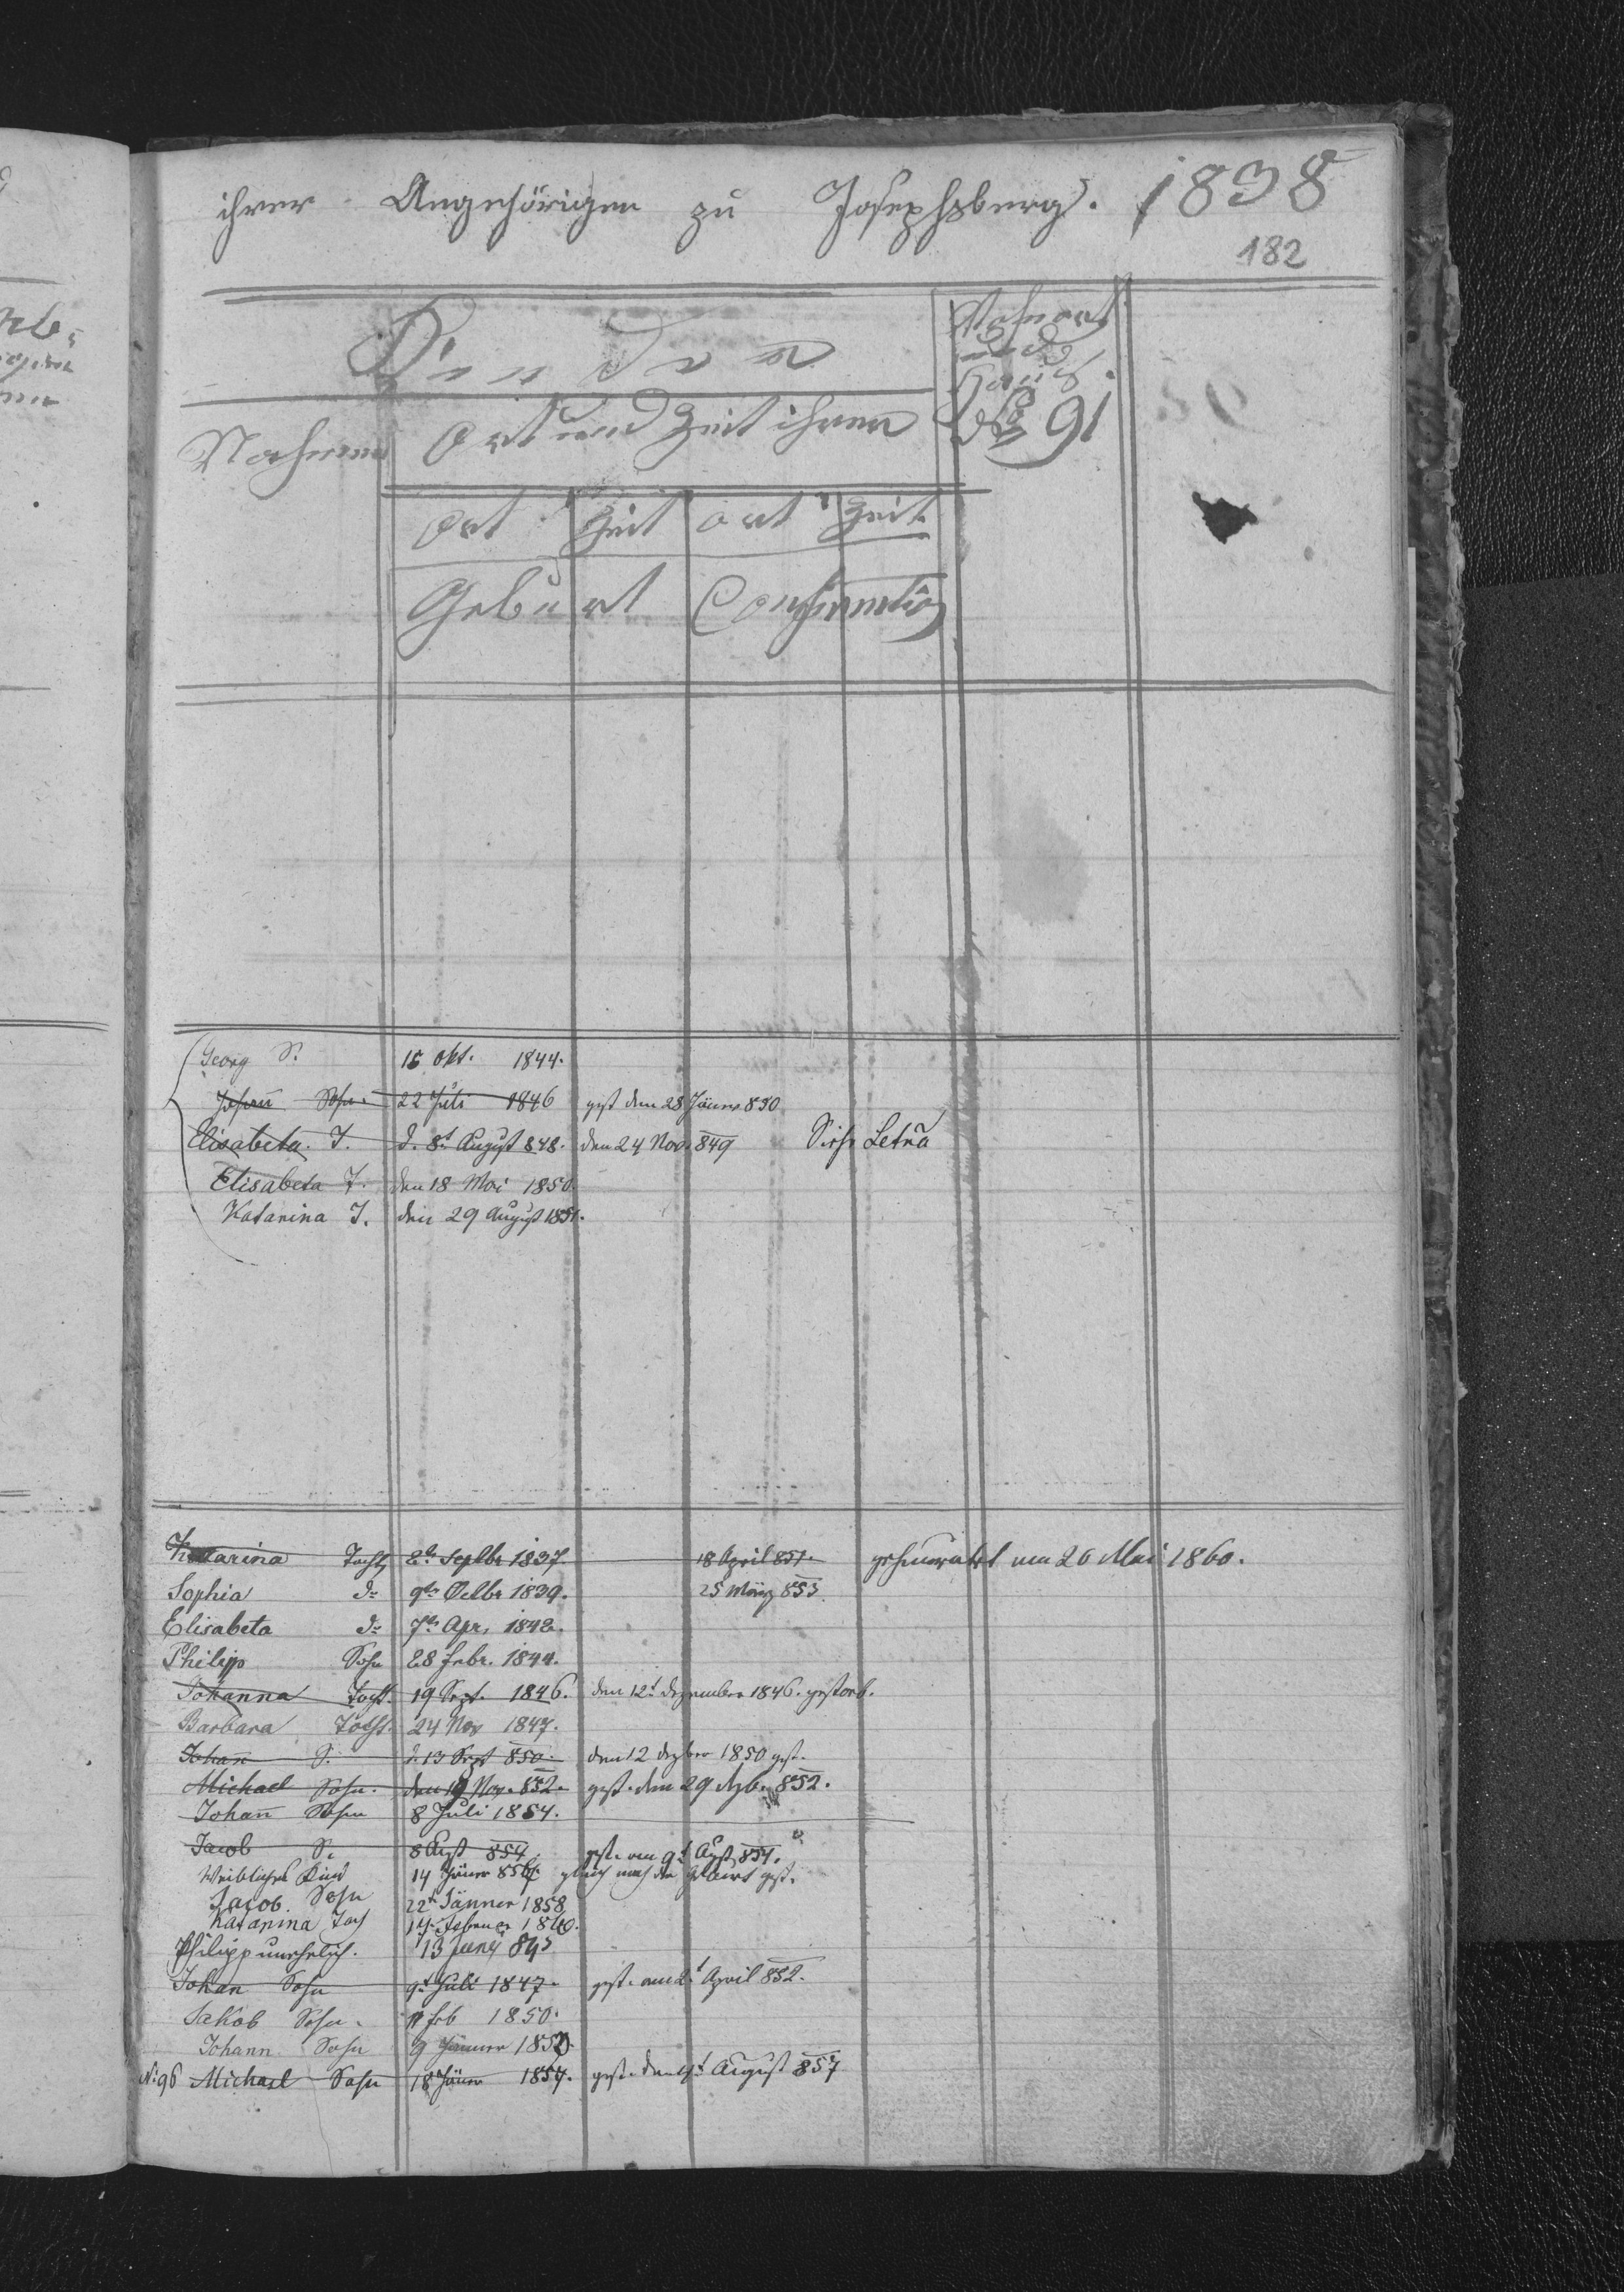 ihrer Angehörigen zu Josephsberg. 1838
182
Kinder
Wohnort und Haus No 91
Nahmen
Ort und Zeit ihrer
Ort Zeit Ort Zeit
Geburt Confirmation
Georg S. 15 Okt. 1844.
Johann Sohn 22 Juli 1846 gest den 28 Jänner 850
Elisabeta T. d. 8t August 848. den 24 Nov. 849 Siehe Letra
Elisabeta T. den 18 Mai 1850.
Katarina T. den 29 August 1851.
Katarina Tocht 2t Septbr 1837 18 April 851. geheurathet am 20 Mai 1860.
Sophia do 9t Octbr 1839. 25 März 853
Elisabeta do 7t Apr. 1842.
Philipp Sohn 28 Febr. 1844.
Johanna Tocht. 19 Sept. 1846. den 12t Dezember 1846. gestorb.
Barbara Tocht. 24 Nov 1847.
Johan S. d. 13 Sept 850. den 12 Dezber 1850 gest.
Michael Sohn. den 19 Nov. 852. gest. den 29 Dezb. 852.
Johan Sohn 8 Juli 1854.
Jacob S. 8 Augst 854. gest. am 9t Augst 854.
Weibliches Kind 14 Jänner 856. gleich nach der Geburt gest.
Jacob Sohn 22t Jänner 1858
Katarina Toch 14 Februar 1860.
Philipp unehelich. 13 Juny 845
Johan Sohn 9t Juli 1847. gest. am 2t April 852.
Jakob Sohn. 11 feb 1850.
Johann Sohn 9 Jänner 1852.
No 96 Michael Sohn 18 Jäner 1857. gest. den 4t August 857